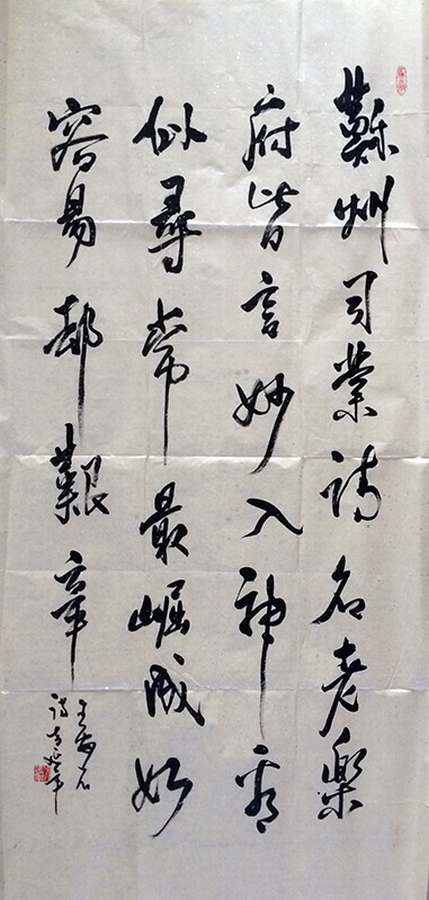 蘇州司業詩名老樂
府皆言妙入神看
似尋常最崛成如
容易却艱辛
王安石
詩